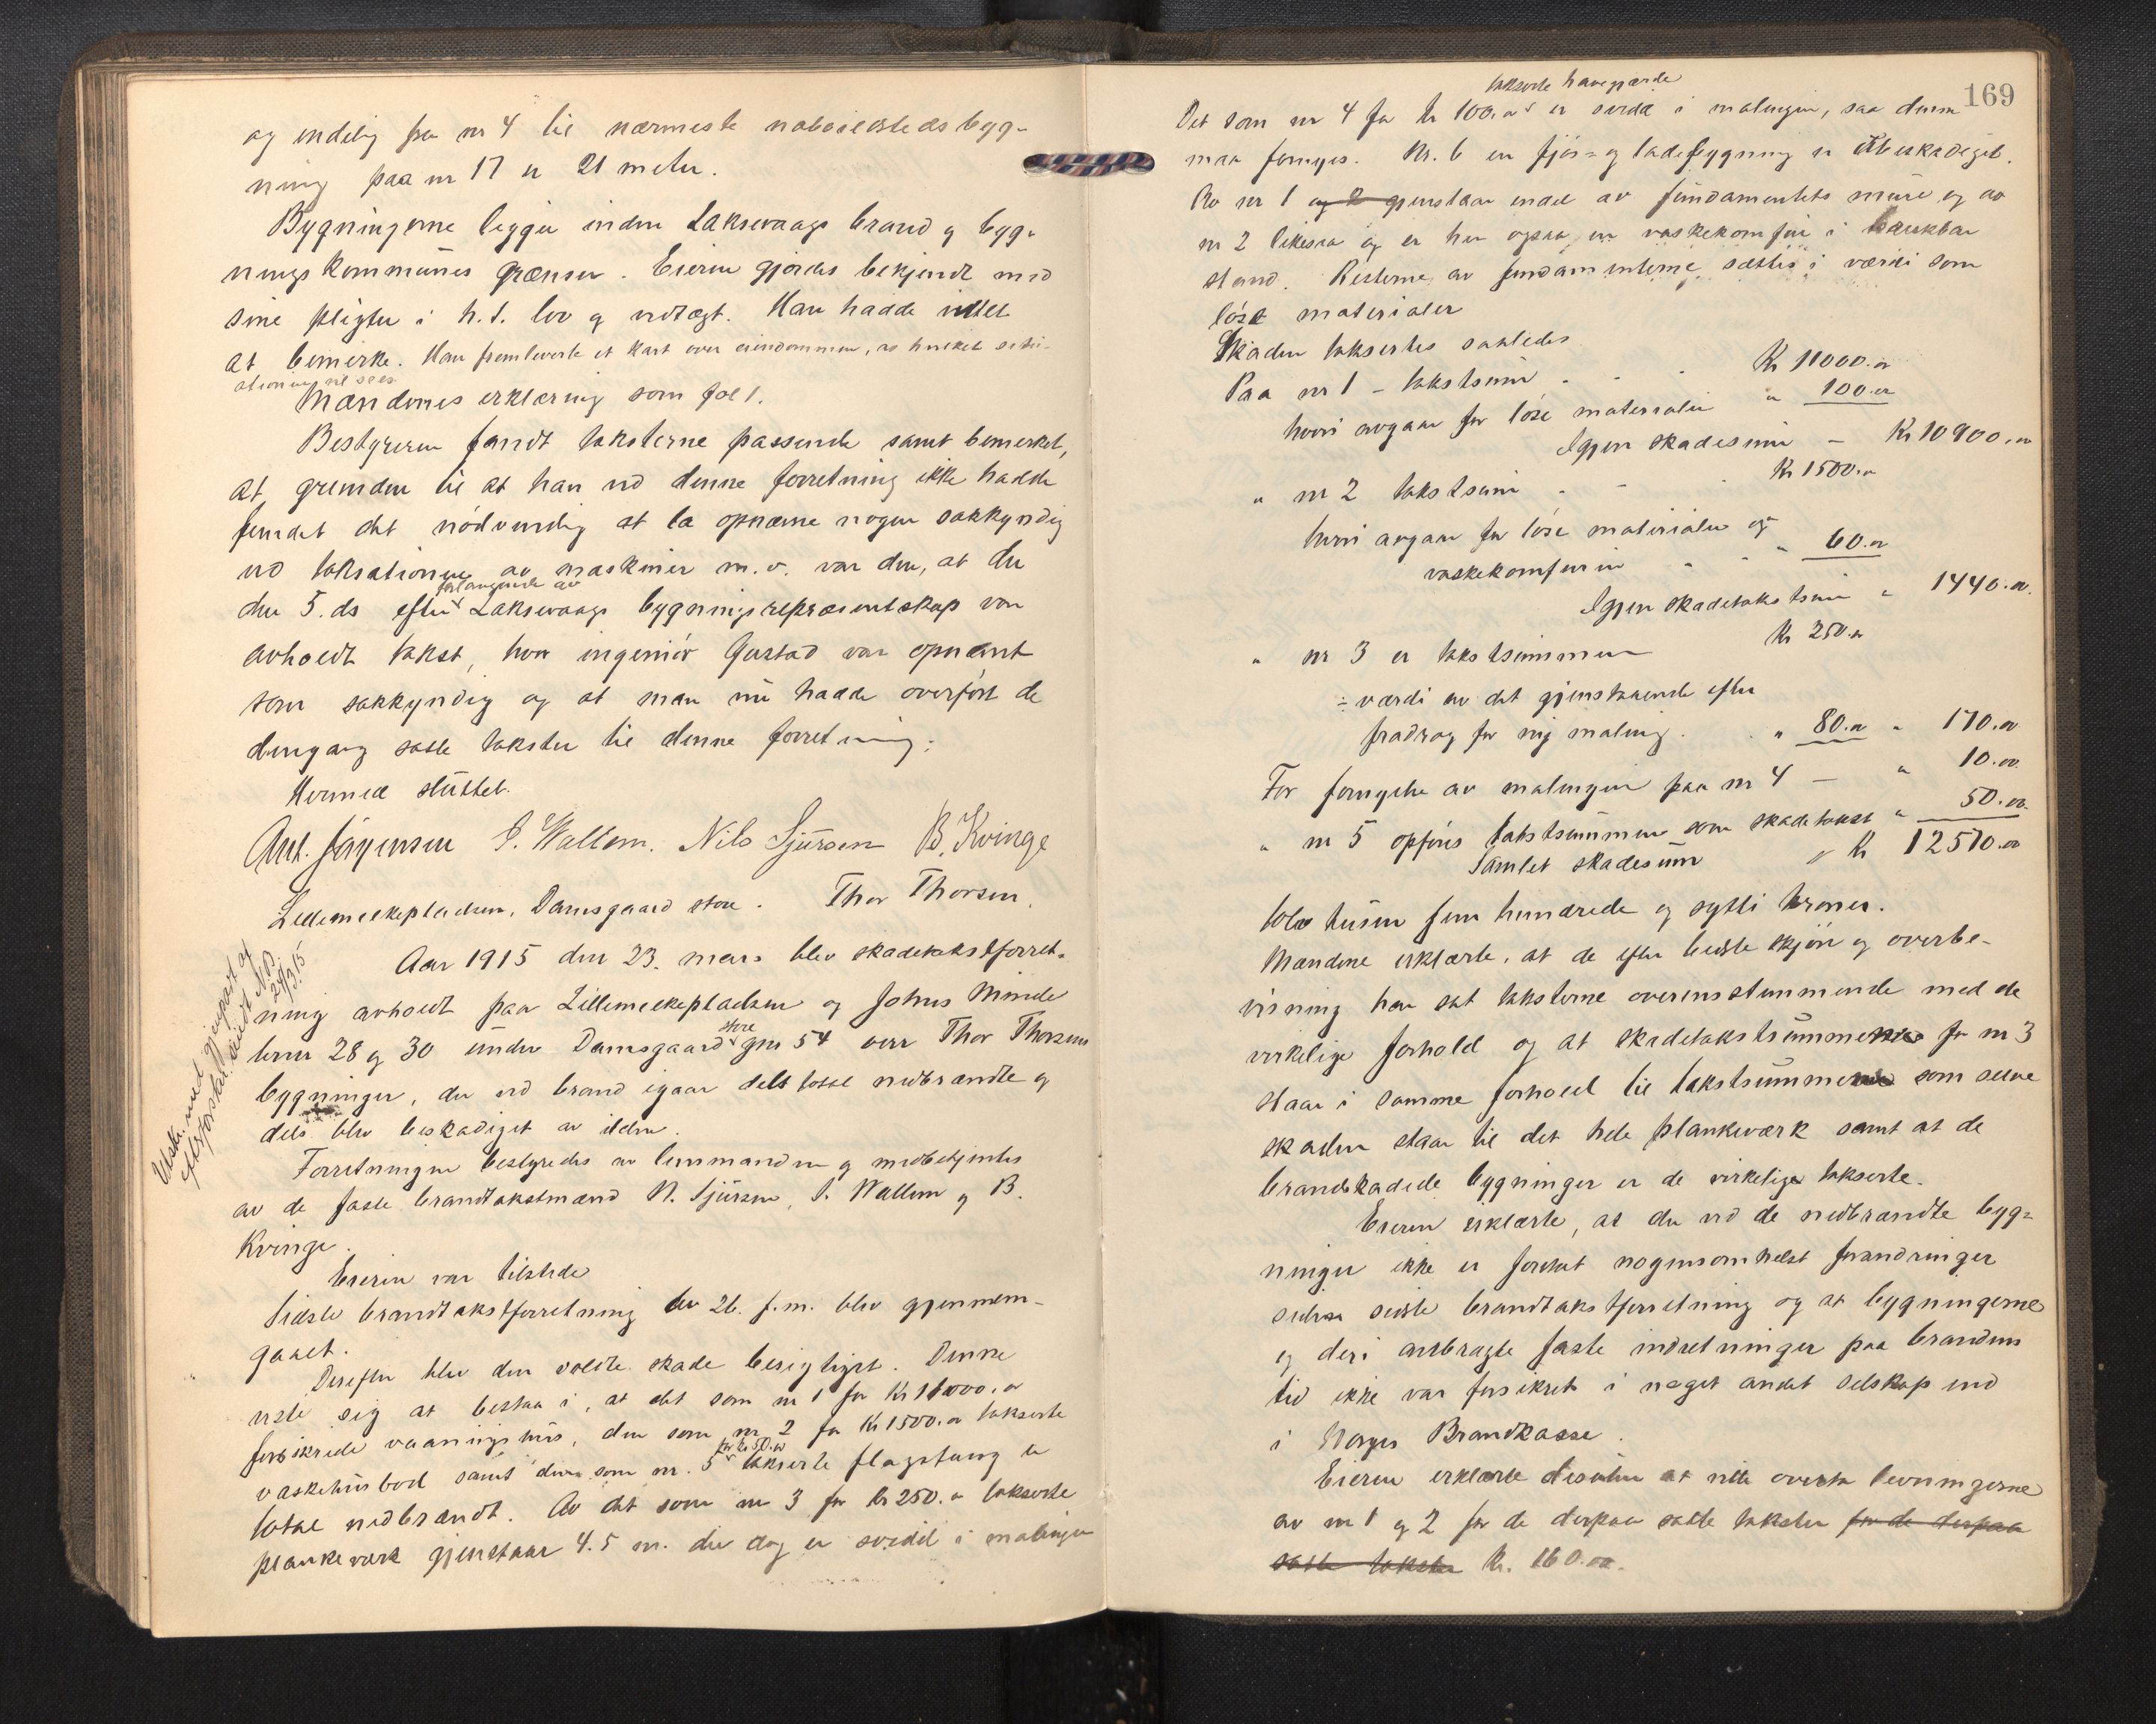 og endelig fra nr 4 til nærmeste naboeiesteds byg-
ning paa nr 17 er 21 meter.
Bygningerne ligger inden Laksevaags brand og byg-
ningskommunes grænser. Eieren gjordes bekjendt med
sine pligter i h.t. lov og vedtægt. Han hadde intet
at bemerke. Han fremleverte et kart over eiendommen, av hvilket situ-
ationen vil sees
Mændenes erklæring som fol 1.
Bestyreren fandt taksterne passende samt bemerket,
at grunden til at han ved denne forretning ikke hadde
fundet det nödvendig at la opnævne nogen sakkyndig
ved taksationen av maskiner m.v. var den, at der
den 5. ds efter forlangende av Laksevaags bygningsrepræsentskap var
avholdt takst, hvor ingeniör Gustad var opnævnt
som sakkyndig og at man nu hadde overfört de
dengang satte takster til denne forretning.
Hermed sluttet.
Ant. Jörgensen S. Wallem. Nils Sjursen B. Kvinge
Lillemelkepladsen, Damsgaard store. Thor Thorsen.
Utskr. med gjenpart af
efterforskn. sendt N.B.
29/3 15
Aar 1915 den 23. mars blev skadetakstforret-
ning avholdt paa Lillemelkepladsen og Johns Minde
bnr 28 og 30 under Damsgaard store gnr 54 over Thor Thorsens
bygninger, der ved brand igaar dels totalt nedbrændte og
dels blev beskadiget av ilden.
Forretningen bestyredes av lensmanden og medbetjentes
av de faste brandtakstmænd N. Sjursen, S. Wallem og B.
Kvinge.
Eieren var tilstede
Sidste brandtakstforretning av 26. f.m. blev gjennem-
gaaet.
Derefter blev den voldte skade besigtiget. Denne
viste sig at bestaa i, at det som nr 1 for Kr 11000.00
forsikrede vaaningshus, den som nr 2 for Kr 1500.00 takserte
vaskehusbod samt den som nr. 5 for kr 50.00 takserte flagstang er
total nedbrændt. Av det som nr 3 for kr 250.00 takserte
plankeværk gjenstaar 4.5 m. der dog er svidd i malingen
169
Det som nr 4 for kr 100.00 takserte havegjærde er svidd i malingen, saa denne
maa fornyes. Nr. 6 en fjös- og ladebygning er ubeskadiget.
Av nr 1 og 2 gjenstaar endel av fundamentets mure og av
nr 2 likesaa og er her ogsaa en vaskekomfur i brukbar
stand. Resterne av fundamenterne sættes i værdi som
löse materialer
Skaden taksertes saaledes
Paa nr 1 - takstsum - - Kr 11000.00
hvori avgaar for löse materialer " 100.00
Igjen skadesum - Kr 10900.00
" nr 2 takstsum - - Kr 1500.00
hvori avgaar for löse materialer og
vaskekomfuren " " 60.00
Igjen skadetakstsum " 1440.00.
" nr 3 er takstsummen Kr 250.00
÷ værdi av det gjenstaaende efter
fradrag for ny maling. " 80.00 " 170.00
For fornyelse av malingen paa nr 4 — " 10.00.
" nr 5 opföres takstsummen som skadetakst " 50.00.
Samlet skadesum " Kr 12570.00
tolv tusen fem hundrede og sytti kroner.
Mændene erklærte, at de efter bedste skjön og overbe-
visning har sat taksterne overensstemmende med de
virkelige forhold og at skadetakstsummen for nr 3
staar i samme forhold til takstsummen som selve
skaden staar til det hele plankeværk samt at de
brandskadede bygninger er de virkelige takserte.
Eieren erklærte, at der ved de nedbrændte byg-
ninger ikke er foretat nogensomhelst forandringer
siden sidste brandtakstforretning og at bygningerne
og deri anbragte faste indretninger paa brandens
tid ikke var forsikret i noget andet selskap end
i Norges Brandkasse.
Eieren erklærte desuten at ville overta levningerne
av nr 1 og 2 for de derpaa satte takster for de derpaa
satte takster Kr. 160.00.